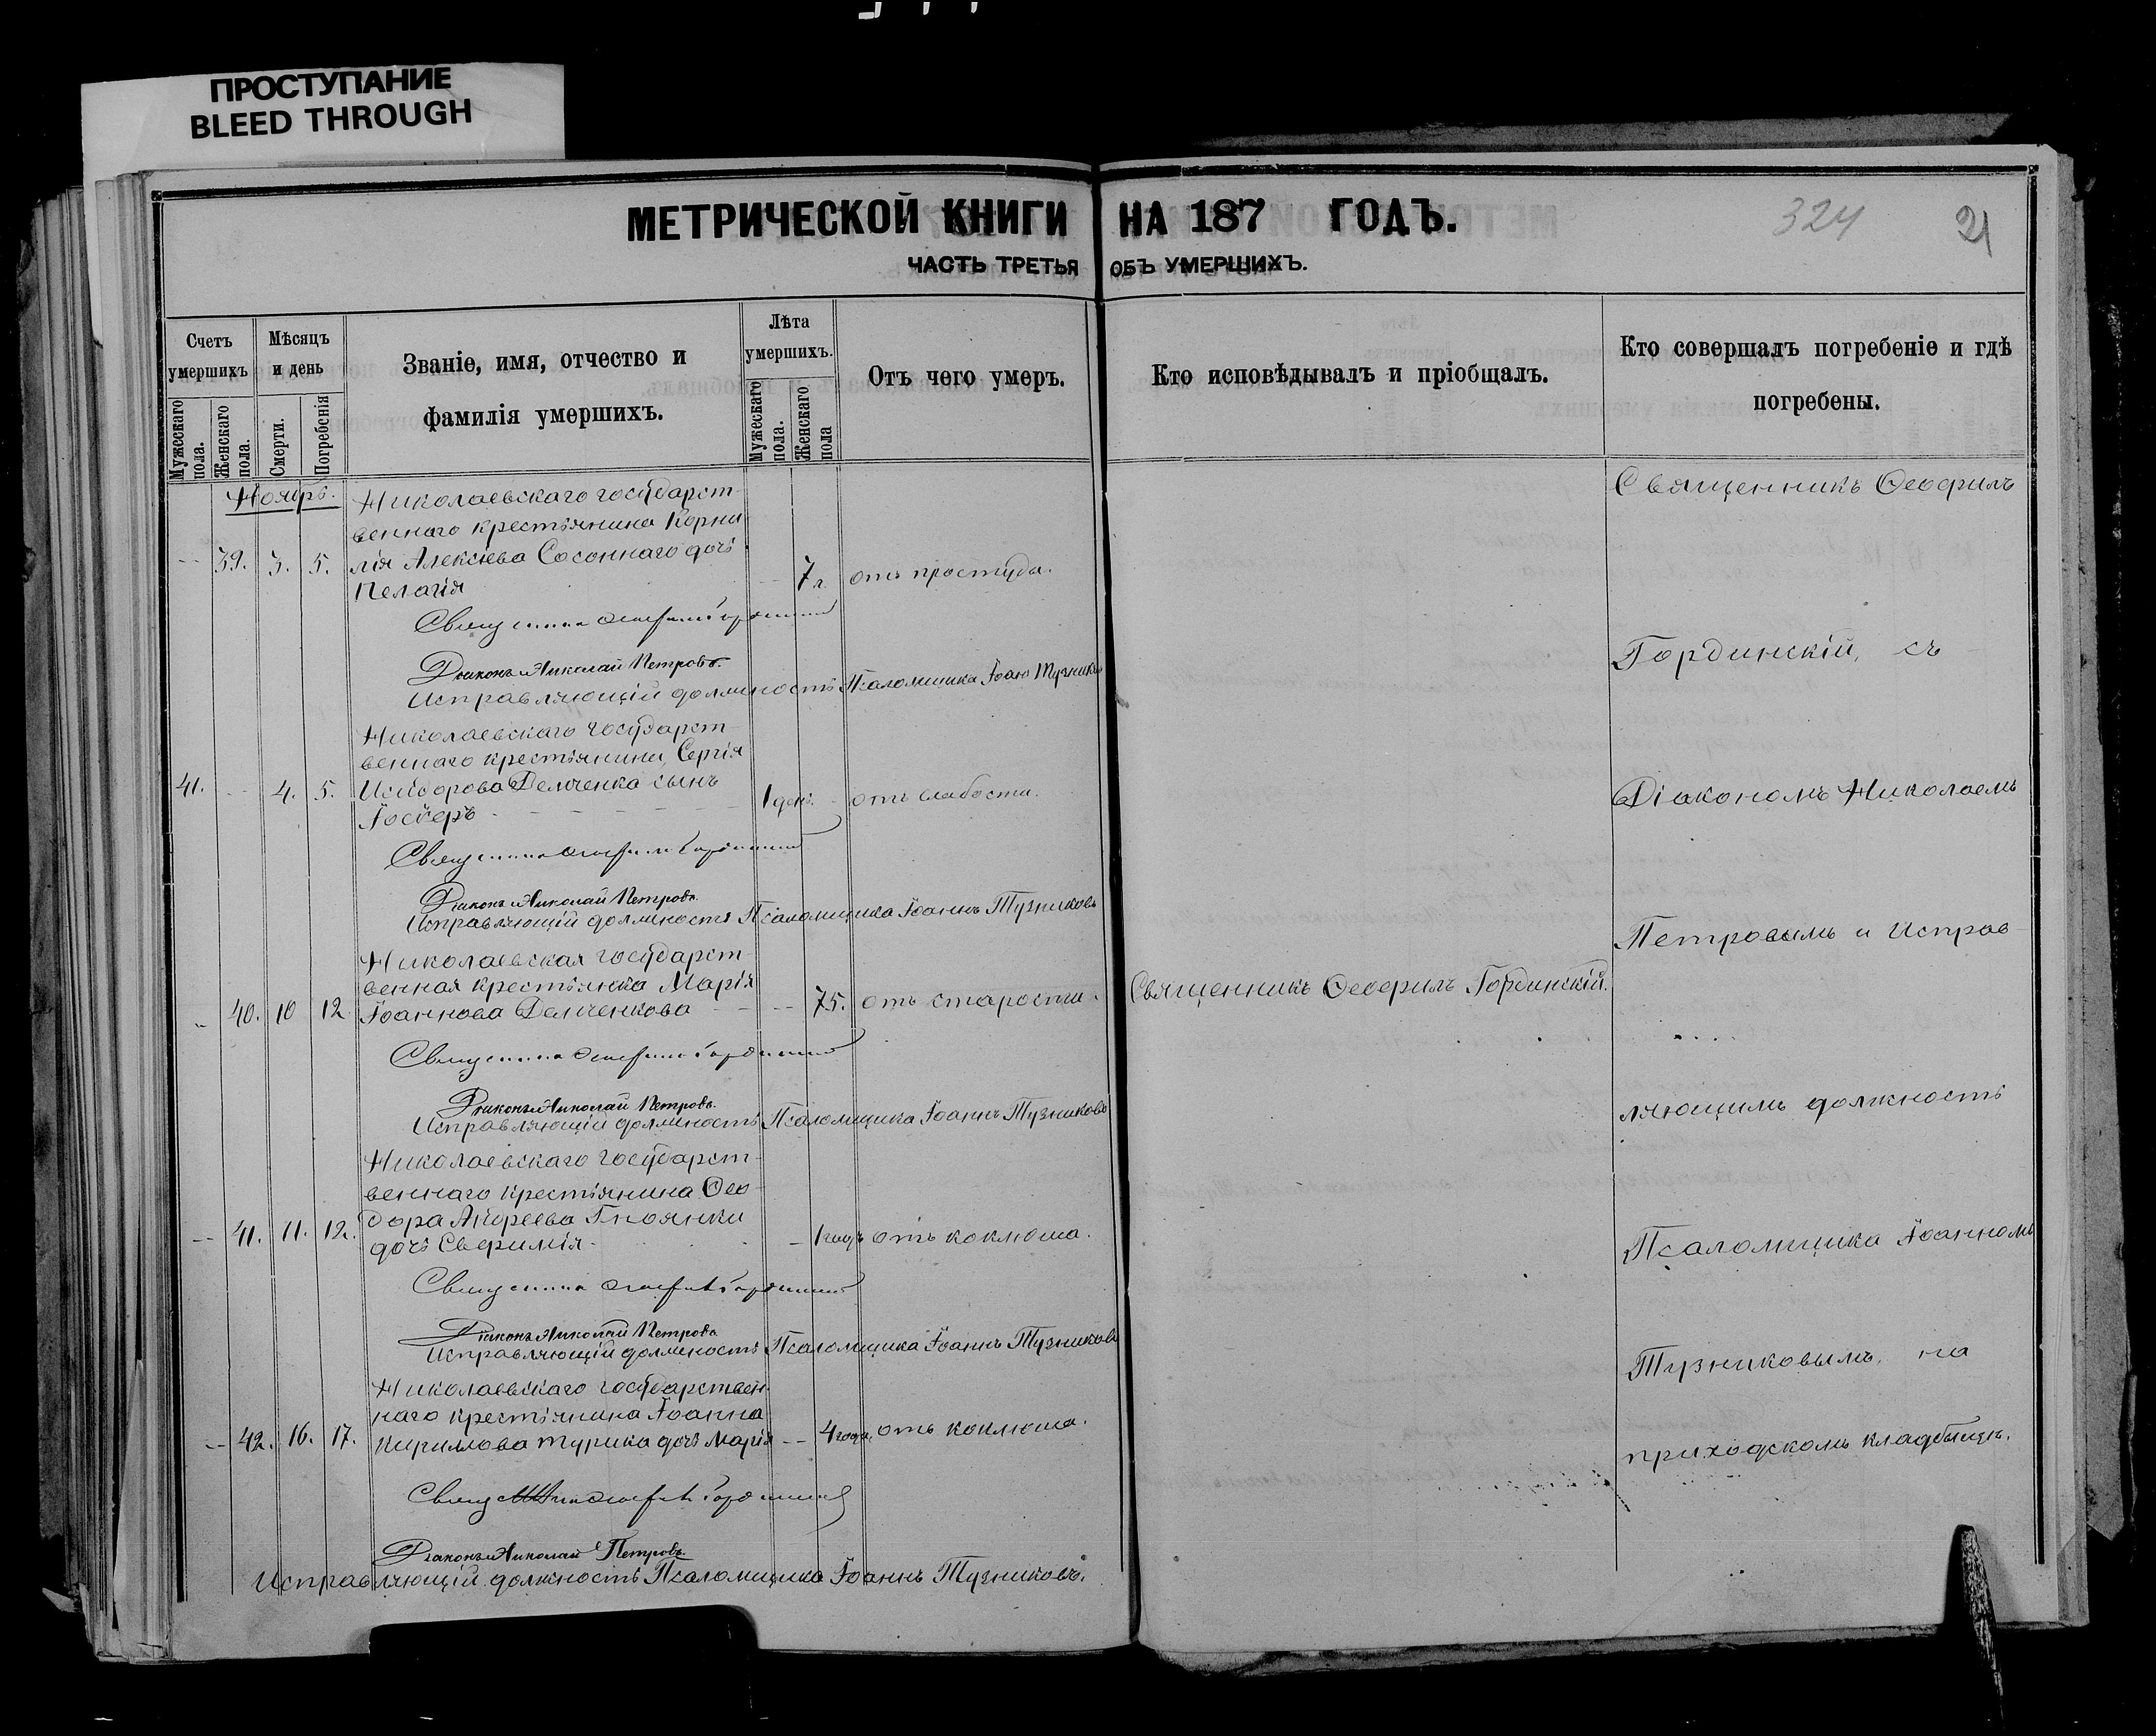 ПРОСТУПАНИЕ
BLEED THROUGH
МЕТРИЧЕСКОЙ КНИГИ НА 187 ГОДЪ.
324
21
ЧАСТЬ ТРЕТЬЯ ОБЪ УМЕРШИХЪ.
Счетъ умершихъ
Мужескаго пола.
Женскаго пола.
Мѣсяцъ и день
Смерти.
Погребенія
Званіе, имя, отчество и
фамилія умершихъ.
Лѣта умершихъ.
Мужескаго пола.
Женскаго пола
Отъ чего умеръ.
Кто исповѣдывалъ и пріобщалъ.
Кто совершалъ погребеніе и гдѣ
погребены.
Ноябрь.
Николаевскаго государст-
веннаго крестьянина Корни
39. 3. 5. лія Алексѣева Сосоннаго дочь
Пелагія 7 л. отъ простуды.
Священникъ Ѳеофилъ Гординскій
Діаконъ Николай Петровъ.
Исправляющій должность Псаломщика Іоаннъ Тузниковъ
Николаевскаго государст-
веннаго крестьянина Сергія
41. 4. 5. Исидорова Демченка сынъ
Іосифъ 1 день. отъ слабости.
Священникъ Ѳеофилъ Гординскій
Діаконъ Николай Петровъ.
Исправляющій должность Псаломщика Іоаннъ Тузниковъ
Николаевская государст-
венная крестьянка Марія
40. 10 12. Іоаннова Демченкова 75. отъ старости. Священникъ Ѳеофилъ Гординскій.
Священникъ Ѳеофилъ Гординскій
Діаконъ Николай Петровъ.
Исправляющій должность Псаломщика Іоаннъ Тузниковъ
Николаевскаго государст-
веннаго крестьянина Ѳео-
41. 11. 12. дора Андреева Гноянки
дочь 1 годъ отъ коклюша.
Священникъ Ѳеофилъ Гординскій
Діаконъ Николай Петровъ.
Исправляющій должность Псаломщика Іоаннъ Тузниковъ
Николаевскаго государствен-
наго крестьянина Іоанна
42. 16. 17. Кириллова Турика дочь Марія 4 года. отъ коклюша.
Священникъ Ѳеофилъ Гординскій
Діаконъ Николай Петровъ.
Исправляющій должность Псаломщика Іоаннъ Тузниковъ.
Священникъ Ѳеофилъ
Гординскій, съ
Діакономъ Николаемъ
Петровымъ и Исправ-
ляющимъ должность
Псаломщика Іоанномъ
Тузниковымъ, на
приходскомъ кладбищѣ.